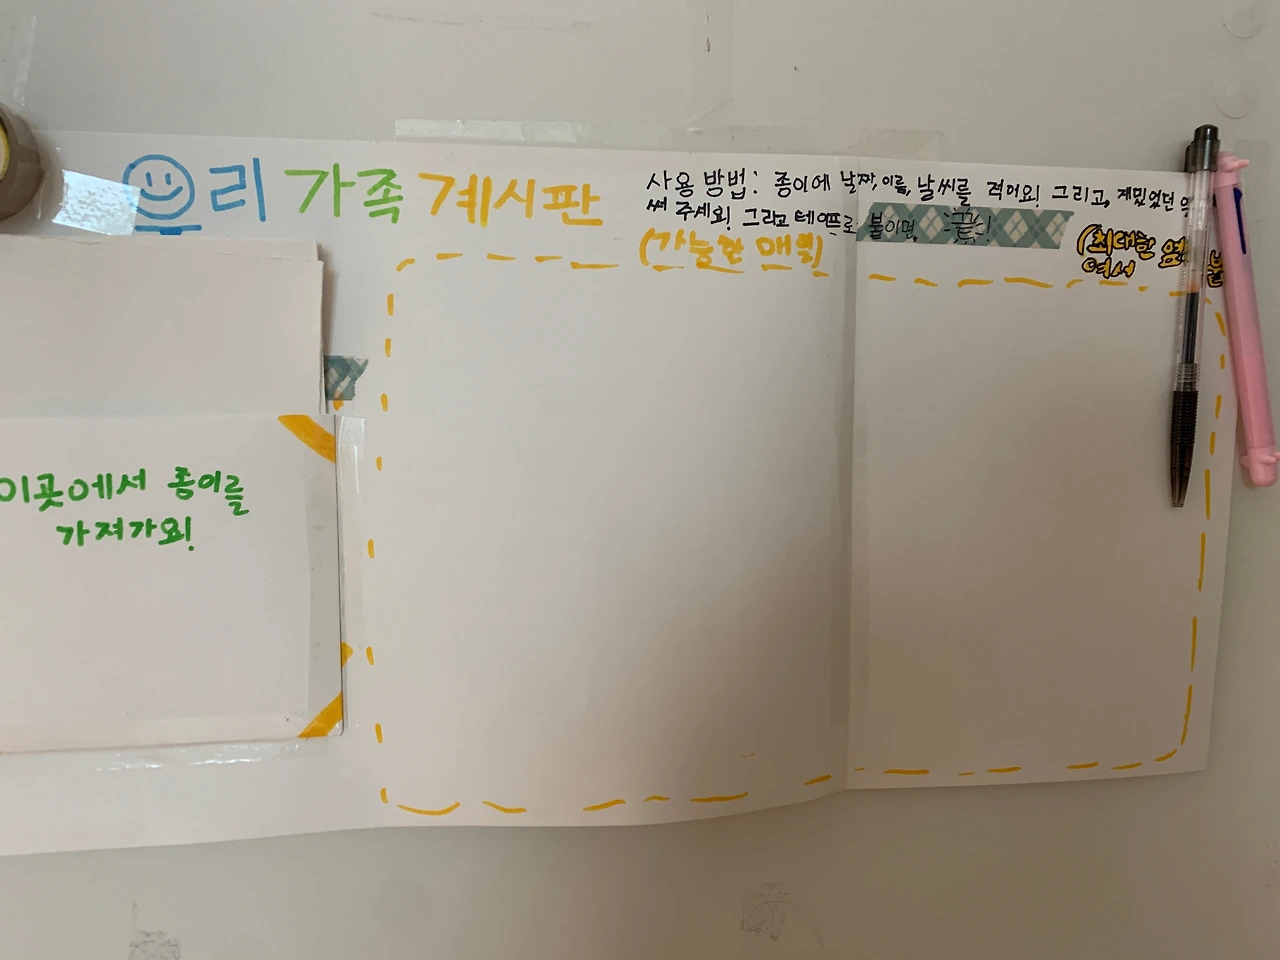 우리 가족 계시판
사용 방법: 종이에 날짜, 이름, 날씨를 적어요! 그리고, 재밌었던
써 주세요! 그리고 테이프로 붙이면, 끝!
(가능한 매일)
(최대한
이곳에서 종이를
가져가요!